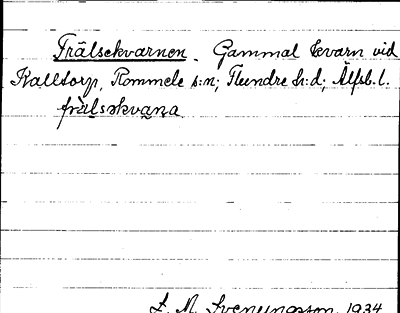 Frälsekvarnen. Gammal kvarn vid
Kalltorp, Rommele s:n; Flundre h:d; Älfsb. l.
frälsəkvaṇa
S. M. Sveningsson. 1934